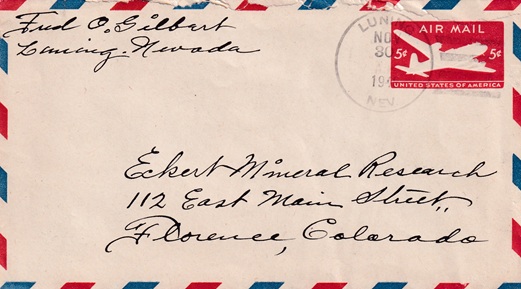 Fred O. Gilbert
Luning, Nevada
LUNING
NO
30
194
NEV
AIR MAIL
5¢ 5¢
UNITED STATES OF AMERICA
Eckert Mineral Research
112 East Main Street,
Florence, Colorado